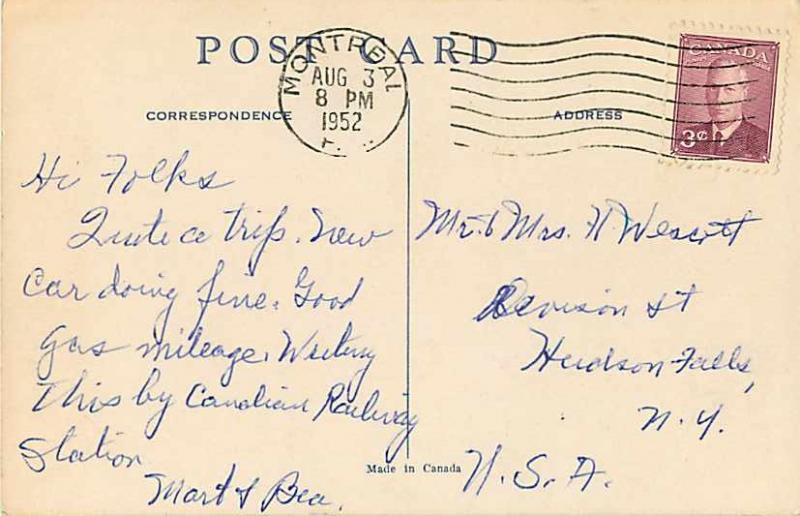 POST CARD
MONTREAL
AUG 3
8 PM
1952
CANADA
3¢
CORRESPONDENCE
ADDRESS
Hi Folks
Quite a trip. New
Car doing fine. Good
gas mileage. Writing
This by Canadian Railway
Station
Mart & Bea.
Mr. & Mrs. H Wescott
St
Hudson Falls,
N.Y.
U.S.A.
Made in Canada